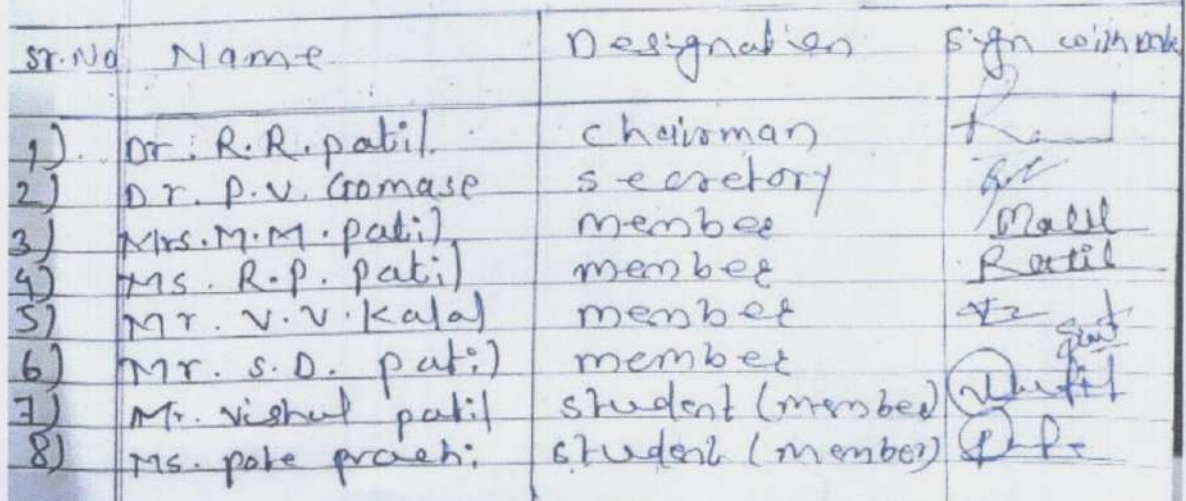 Sr.No Name Designation Sign with
1) Dr. R.R. patil. chairman
2) Dr. P.V. Gomase secretory
3) Mrs. M.M. patil member
4) Ms. R.P. patil member Ratil
5) Mr. V.V. Kalal member
6) Mr. S.D. patil member
7) Mr. vishal patil student (member)
8) Ms. pote prachi student (member)